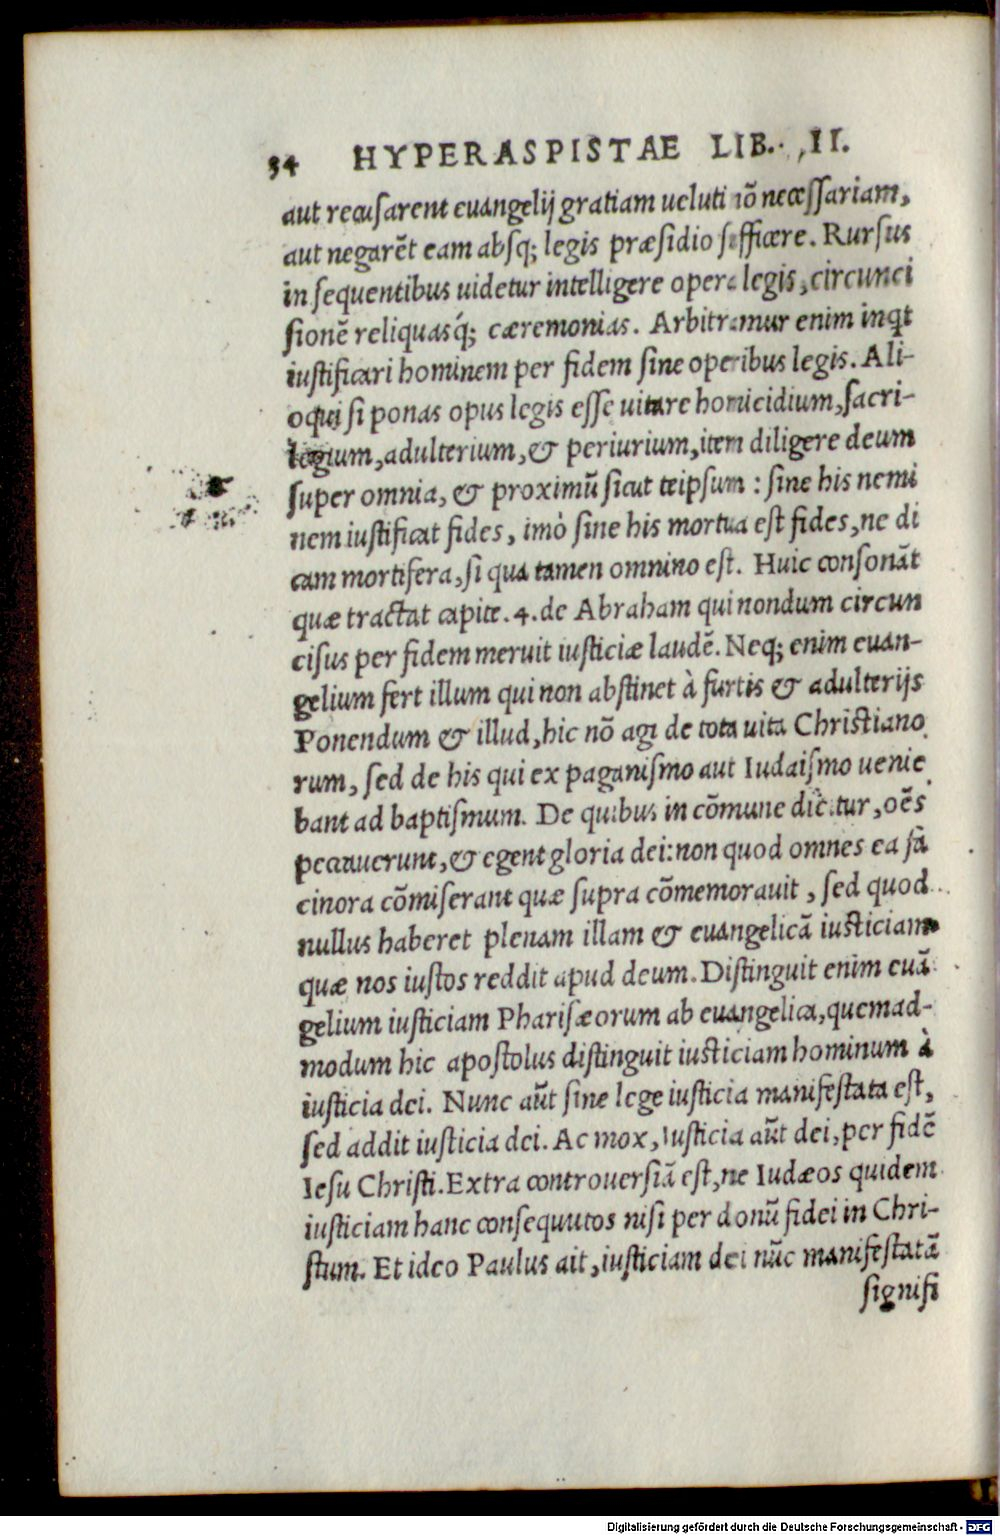 34 HYPERASPISTAE LIB. II.
aut recusarent euangelij gratiam ueluti nõ necessariam,
aut negarẽt eam absq; legis præsidio sufficere. Rursus
in sequentibus uidetur intelligere opera legis, circunci
sionẽ reliquasq́; cæremonias. Arbitramur enim inqt
iustificari hominem per fidem sine operibus legis. Ali-
oqui si ponas opus legis esse uitare homicidium, sacri-
legium, adulterium, & periurium, item diligere deum
super omnia, & proximũ sicut teipsum : sine his nemi
nem iustificat fides, imò sine his mortua est fides, ne di
cam mortifera, si qua tamen omnino est. Huic consonãt
quæ tractat capite. 4. de Abraham qui nondum circun
cisus per fidem meruit iusticiæ laudẽ. Neq; enim euan-
gelium fert illum qui non abstinet à furtis & adulterijs
Ponendum & illud, hic nõ agi de tota uita Christiano
rum, sed de his qui ex paganismo aut Iudaismo uenie
bant ad baptismum. De quibus in cõmune dicitur, oẽs
peccauerunt, & egent gloria dei: non quod omnes ea fa
cinora cõmiserant quæ supra cõmemorauit, sed quod
nullus haberet plenam illam & euangelicã iusticiam
quæ nos iustos reddit apud deum. Distinguit enim euã
gelium iusticiam Pharisæorum ab euangelica, quemad-
modum hic apostolus distinguit iusticiam hominum à
iusticia dei. Nunc aũt sine lege iusticia manifestata est,
sed addit iusticia dei. Ac mox, Iusticia aũt dei, per fidẽ
Iesu Christi. Extra controuersiã est, ne Iudæos quidem
iusticiam hanc consequutos nisi per donũ fidei in Chri-
stum. Et ideo Paulus ait, iusticiam dei nũc manifestatã
signifi
Digitalisierung gefördert durch die Deutsche Forschungsgemeinschaft - DFG